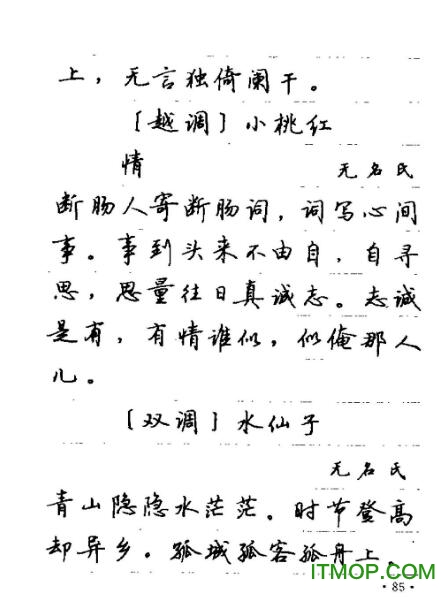 上，无言独倚阑干。
［越调］小桃红
情 无名氏
断肠人寄断肠词，词写心间
事。事到头来不由自，自寻
思，思量往日真诚志。志诚
是有，有情谁似，似俺那人
儿。
［双调］水仙子
无名氏
青山隐隐水茫茫。时节登高
却异乡。孤城孤客孤舟上。
ITMOP.com
·85·